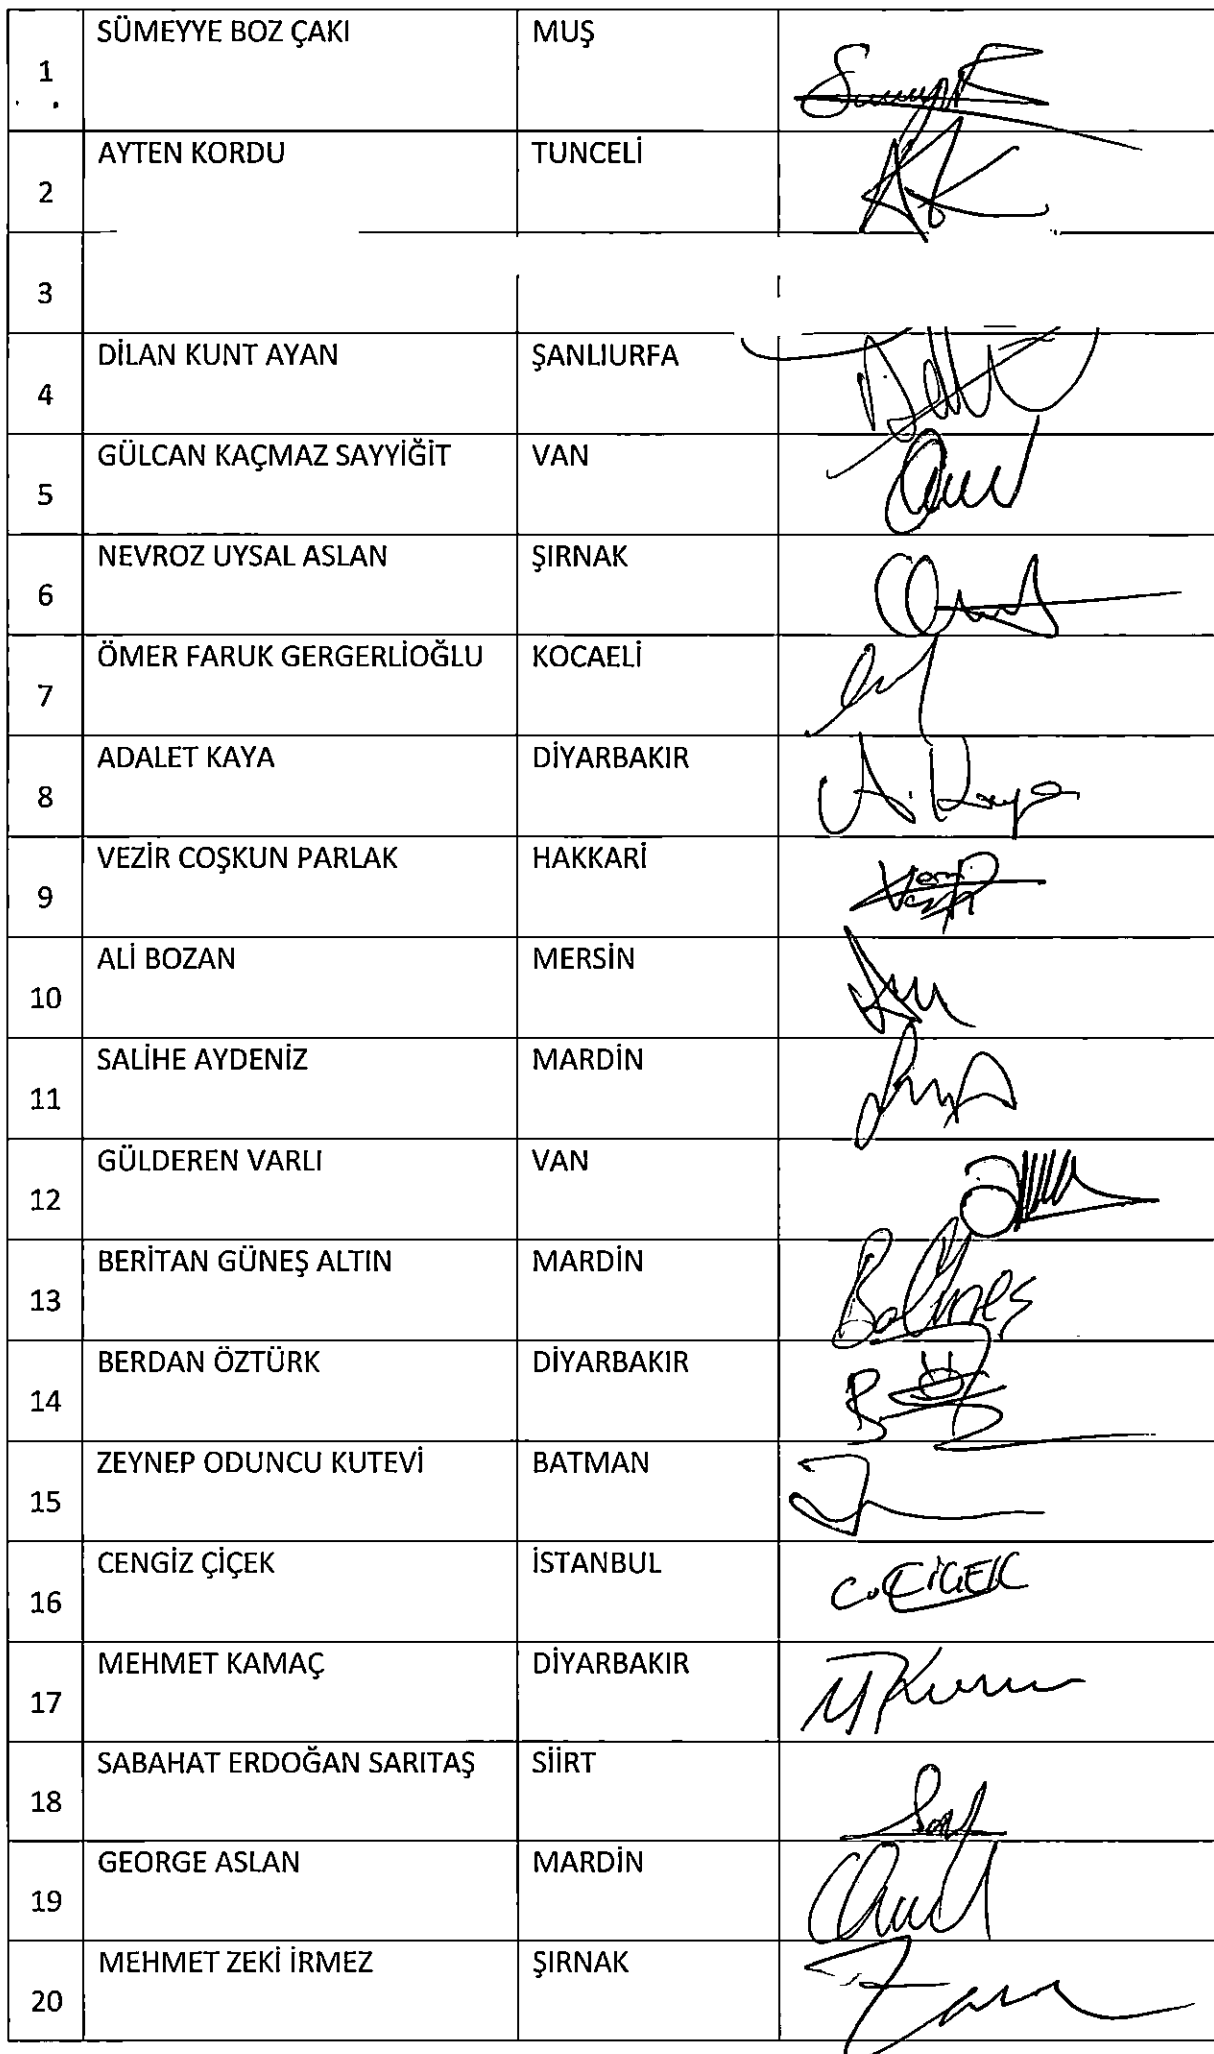 1 SÜMEYYE BOZ ÇAKI MUŞ
2 AYTEN KORDU TUNCELİ
3
4 DİLAN KUNT AYAN ŞANLIURFA
5 GÜLCAN KAÇMAZ SAYYİĞİT VAN
6 NEVROZ UYSAL ASLAN ŞIRNAK
7 ÖMER FARUK GERGERLİOĞLU KOCAELİ
8 ADALET KAYA DİYARBAKIR A. Kaya
9 VEZİR COŞKUN PARLAK HAKKARİ
10 ALİ BOZAN MERSİN
11 SALİHE AYDENİZ MARDİN
12 GÜLDEREN VARLI VAN
13 BERİTAN GÜNEŞ ALTIN MARDİN
14 BERDAN ÖZTÜRK DİYARBAKIR
15 ZEYNEP ODUNCU KUTEVİ BATMAN
16 CENGİZ ÇİÇEK İSTANBUL C.ÇİÇEK
17 MEHMET KAMAÇ DİYARBAKIR
18 SABAHAT ERDOĞAN SARITAŞ SİİRT
19 GEORGE ASLAN MARDİN
20 MEHMET ZEKİ İRMEZ ŞIRNAK